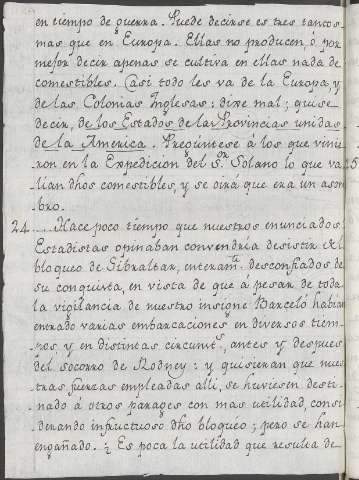 en tiempo de guerra. Puede decirse es tres tantos
mas que en Europa. Ellas no producen, ó por
mejor decir apenas se cultiva en ellas nada de
comestibles. Casi todo les va de la Europa y
de las Colonias Inglesas; dixe mal; quise
decir, de los Estados de las Provincias unidas
de la America. Pregúntese á los que vinie
ron en la Expedicion del Sor. Solano lo que va
lian dhos comestibles, y se oirá que era un asom
bro.
24.... Hace poco tiempo que nuestros enunciados
Estadistas opinaban convendría desistir del
bloqueo de Gibraltar, enteramte. desconfiados de
su conquista, en vista de que á pesar de toda
la vigilancia de nuestro insigne Barceló habian
entrado varias embarcaciones en diversos tiem
pos y en distintas circunsts. antes y despues
del socorro de Rodney: y quisieran que nues
tras fuerzas empleadas allí, se huviesen desti
nado á otros parages con mas utilidad, consi
derando infructuoso dho bloqueo; pero se han
engañado. ¿Es poca la utilidad que resulta de